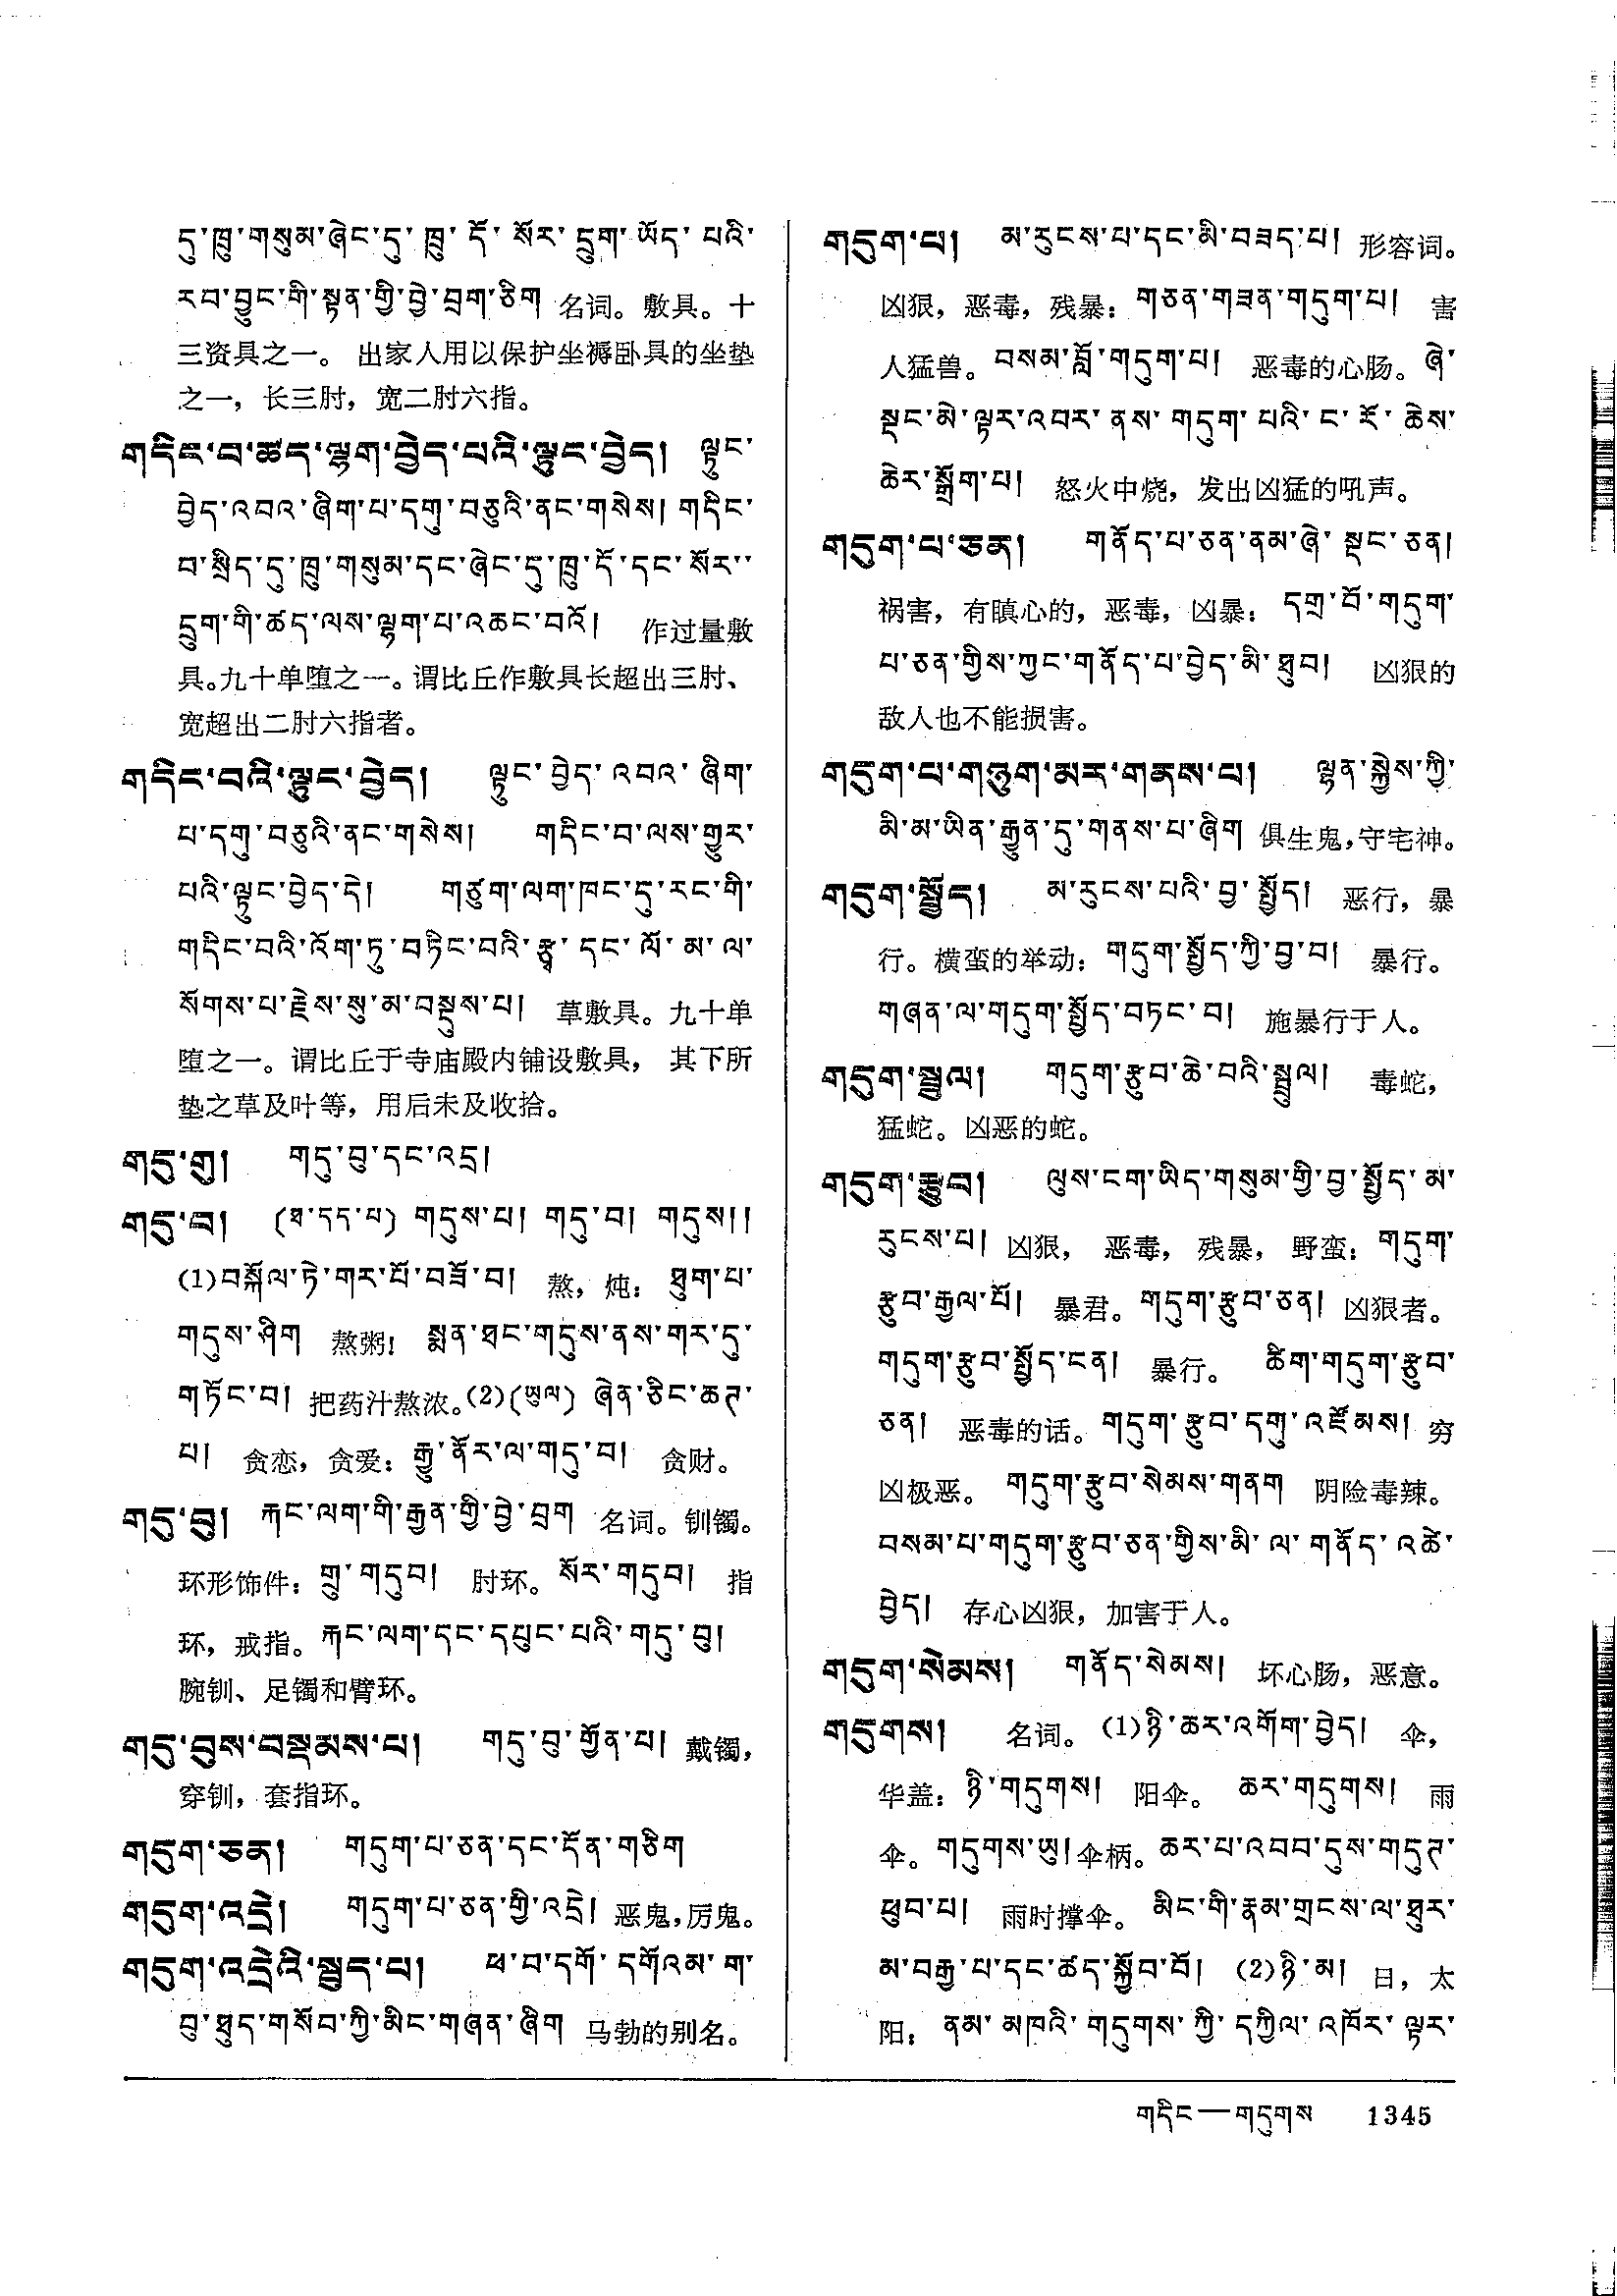 དུ་ཁྲུ་གསུམ་ཞེང་དུ་ ཁྲུ་ དོ་ སོར་ དྲུག་ ཡོད་ པའི་
རབ་བྱུང་གི་སྟན་གྱི་བྱེ་བྲག་ཅིག 名词。敷具。十
三资具之一。 出家人用以保护坐褥卧具的坐垫
之一，长三肘，宽二肘六指。
གདིང་བ་ཚད་ལྷག་བྱེད་པའི་ལྟུང་བྱེད། ལྟུང་
བྱེད་འབའ་ཞིག་པ་དགུ་བཅུའི་ནང་གསེས། གདིང་
བ་སྲིད་དུ་ཁྲུ་གསུམ་དང་ཞེང་དུ་ཁྲུ་དོ་དང་སོར་་
དྲུག་གི་ཚད་ལས་ལྷག་པ་འཆང་བའོ། 作过量敷
具。九十单堕之一。谓比丘作敷具长超出三肘、
宽超出二肘六指者。
གདིང་བའི་ལྟུང་བྱེད། ལྟུང་ བྱེད་ འབའ་ ཞིག་
པ་དགུ་བཅུའི་ནང་གསེས། གདིང་བ་ལས་གྱུར་
པའི་ལྟུང་བྱེད་དེ། གཙུག་ལག་ཁང་དུ་རང་གི་
གདིང་བའི་འོག་ཏུ་བཏིང་བའི་རྩྭ་ དང་ ལོ་ མ་ ལ་
སོགས་པ་རྗེས་སུ་མ་བསྡུས་པ། 草敷具。九十单
堕之一。谓比丘于寺庙殿内铺设敷具， 其下所
垫之草及叶等，用后未及收拾。
གདུ་གུ། གདུ་བུ་དང་འདྲ།
གདུ་བ། (ཐ་དད་པ) གདུས་པ། གདུ་བ། གདུས།།
(1)བསྐོལ་ཏེ་གར་པོ་བཟོ་བ། 熬，炖： ཐུག་པ་
གདུས་ཤིག 熬粥！ སྨན་ཐང་གདུས་ནས་གར་དུ་
གཏོང་བ། 把药汁熬浓。(2)(ཡུལ) ཞེན་ཅིང་ཆཊ་
པ། 贪恋，贪爱：རྒྱུ་ནོར་ལ་གདུ་བ། 贪财。
གདུ་བུ། རྐང་ལག་གི་རྒྱན་གྱི་བྱེ་བྲག 名词。钏镯。
环形饰件：གྲུ་གདུབ། 肘环。སོར་གདུབ། 指
环，戒指。རྐང་ལག་དང་དཔུང་པའི་གདུ་བུ།
腕钏、足镯和臂环。
གདུ་བུས་བསྡམས་པ། གདུ་བུ་གྱོན་པ། 戴镯，
穿钏，套指环。
གདུག་ཅན། གདུག་པ་ཅན་དང་དོན་གཅིག
གདུག་འདྲེ། གདུག་པ་ཅན་གྱི་འདྲེ། 恶鬼，厉鬼。
གདུག་འདྲེའི་སྦུད་པ། ཕ་བ་དགོ་ དགོའམ་ ག་
བུ་ཐུད་གསོབ་ཀྱི་མིང་གཞན་ཞིག 马勃的别名。
གདུག་པ། མ་རུངས་པ་དང་མི་བཟད་པ། 形容词。
凶狠，恶毒，残暴：གཅན་གཟན་གདུག་པ། 害
人猛兽。བསམ་བློ་གདུག་པ། 恶毒的心肠。ཞེ་
སྡང་མེ་ལྟར་འབར་ ནས་ གདུག་ པའི་ ང་ རོ་ ཆེས་
ཆེར་སྒྲོག་པ། 怒火中烧，发出凶猛的吼声。
གདུག་པ་ཅན། གནོད་པ་ཅན་ནམ་ཞེ་ སྡང་ ཅན།
祸害，有瞋心的，恶毒，凶暴：དགྲ་བོ་གདུག་
པ་ཅན་གྱིས་ཀྱང་གནོད་པ་བྱེད་མི་ཐུབ། 凶狠的
敌人也不能损害。
གདུག་པ་གཉུག་མར་གནས་པ། ལྷན་སྐྱེས་ཀྱི་
མི་མ་ཡིན་རྒྱུན་དུ་གནས་པ་ཞིག 俱生鬼，守宅神。
གདུག་སྤྱོད། མ་རུངས་པའི་བྱ་སྤྱོད། 恶行，暴
行。横蛮的举动：གདུག་སྤྱོད་ཀྱི་བྱ་བ། 暴行。
གཞན་ལ་གདུག་སྤྱོད་བཏང་བ། 施暴行于人。
གདུག་སྦྲུལ། གདུག་རྩུབ་ཆེ་བའི་སྦྲུལ། 毒蛇，
猛蛇。凶恶的蛇。
གདུག་རྩུབ། ལུས་ངག་ཡིད་གསུམ་གྱི་བྱ་སྤྱོད་མ་
རུངས་པ། 凶狠， 恶毒， 残暴， 野蛮：གདུག་
རྩུབ་རྒྱལ་པོ། 暴君。གདུག་རྩུབ་ཅན། 凶狠者。
གདུག་རྩུབ་སྤྱོད་ངན། 暴行。 ཚིག་གདུག་རྩུབ་
ཅན། 恶毒的话。གདུག་རྩུབ་དགུ་འཛོམས། 穷
凶极恶。 གདུག་རྩུབ་སེམས་གནག 阴险毒辣。
བསམ་པ་གདུག་རྩུབ་ཅན་གྱིས་མི་ ལ་ གནོད་ འཚེ་
བྱེད། 存心凶狠，加害于人。
གདུག་སེམས། གནོད་སེམས། 坏心肠，恶意。
གདུགས། 名词。(1)ཉི་ཆར་འགོག་བྱེད། 伞，
华盖：ཉི་གདུགས། 阳伞。 ཆར་གདུགས། 雨
伞。གདུགས་ཡུ།伞柄。ཆར་པ་འབབ་དུས་གདུཊ་
ཕུབ་པ། 雨时撑伞。 མིང་གི་རྣམ་གྲངས་ལ་ཐུར་
མ་བརྒྱ་པ་དང་ཚད་སྐྱོབ་བོ། (2)ཉི་མ། 日，太
阳： ནམ་ མཁའི་ གདུགས་ ཀྱི་ དཀྱིལ་ འཁོར་ ལྟར་
གདིང—གདུགས 1345